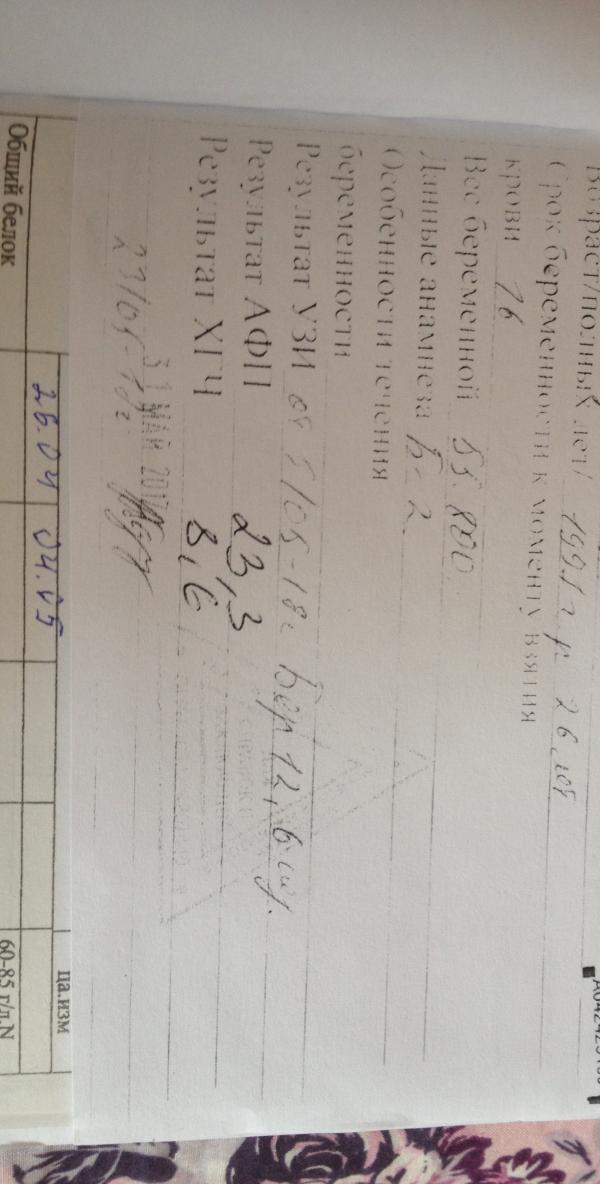 Возраст/полных лет/ 1991 г.р 26 лет
Срок беременности к моменту взятия
крови 16
Вес беременной 55.800
Данные анамнеза Б-2
Особенности течения
беременности
Результат УЗИ от 5/05-18г Бер 12,6 нед.
Результат АФП 23,3
Результат ХГЧ 8,6
МАЙ 201
26.04 04.05
ца.изм
Общий белок 60-85 г/л.N